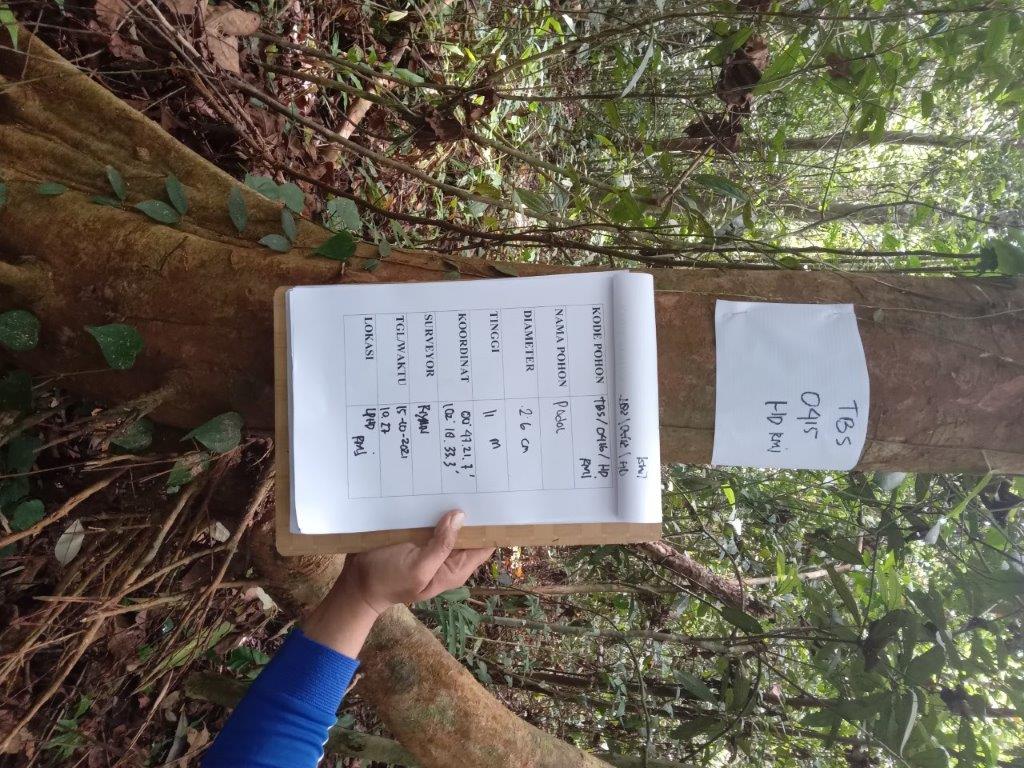 TBS
0415
HD RMJ
KODE POHON TBS/0415/HD
RMJ
NAMA POHON Padal
DIAMETER 26 cm
TINGGI 11 m
KOORDINAT 00°47.21.7'
102°18.33.3'
SURVEYOR
TGL/WAKTU 15-10-2021
10.27
LOKASI LPHD
RMJ